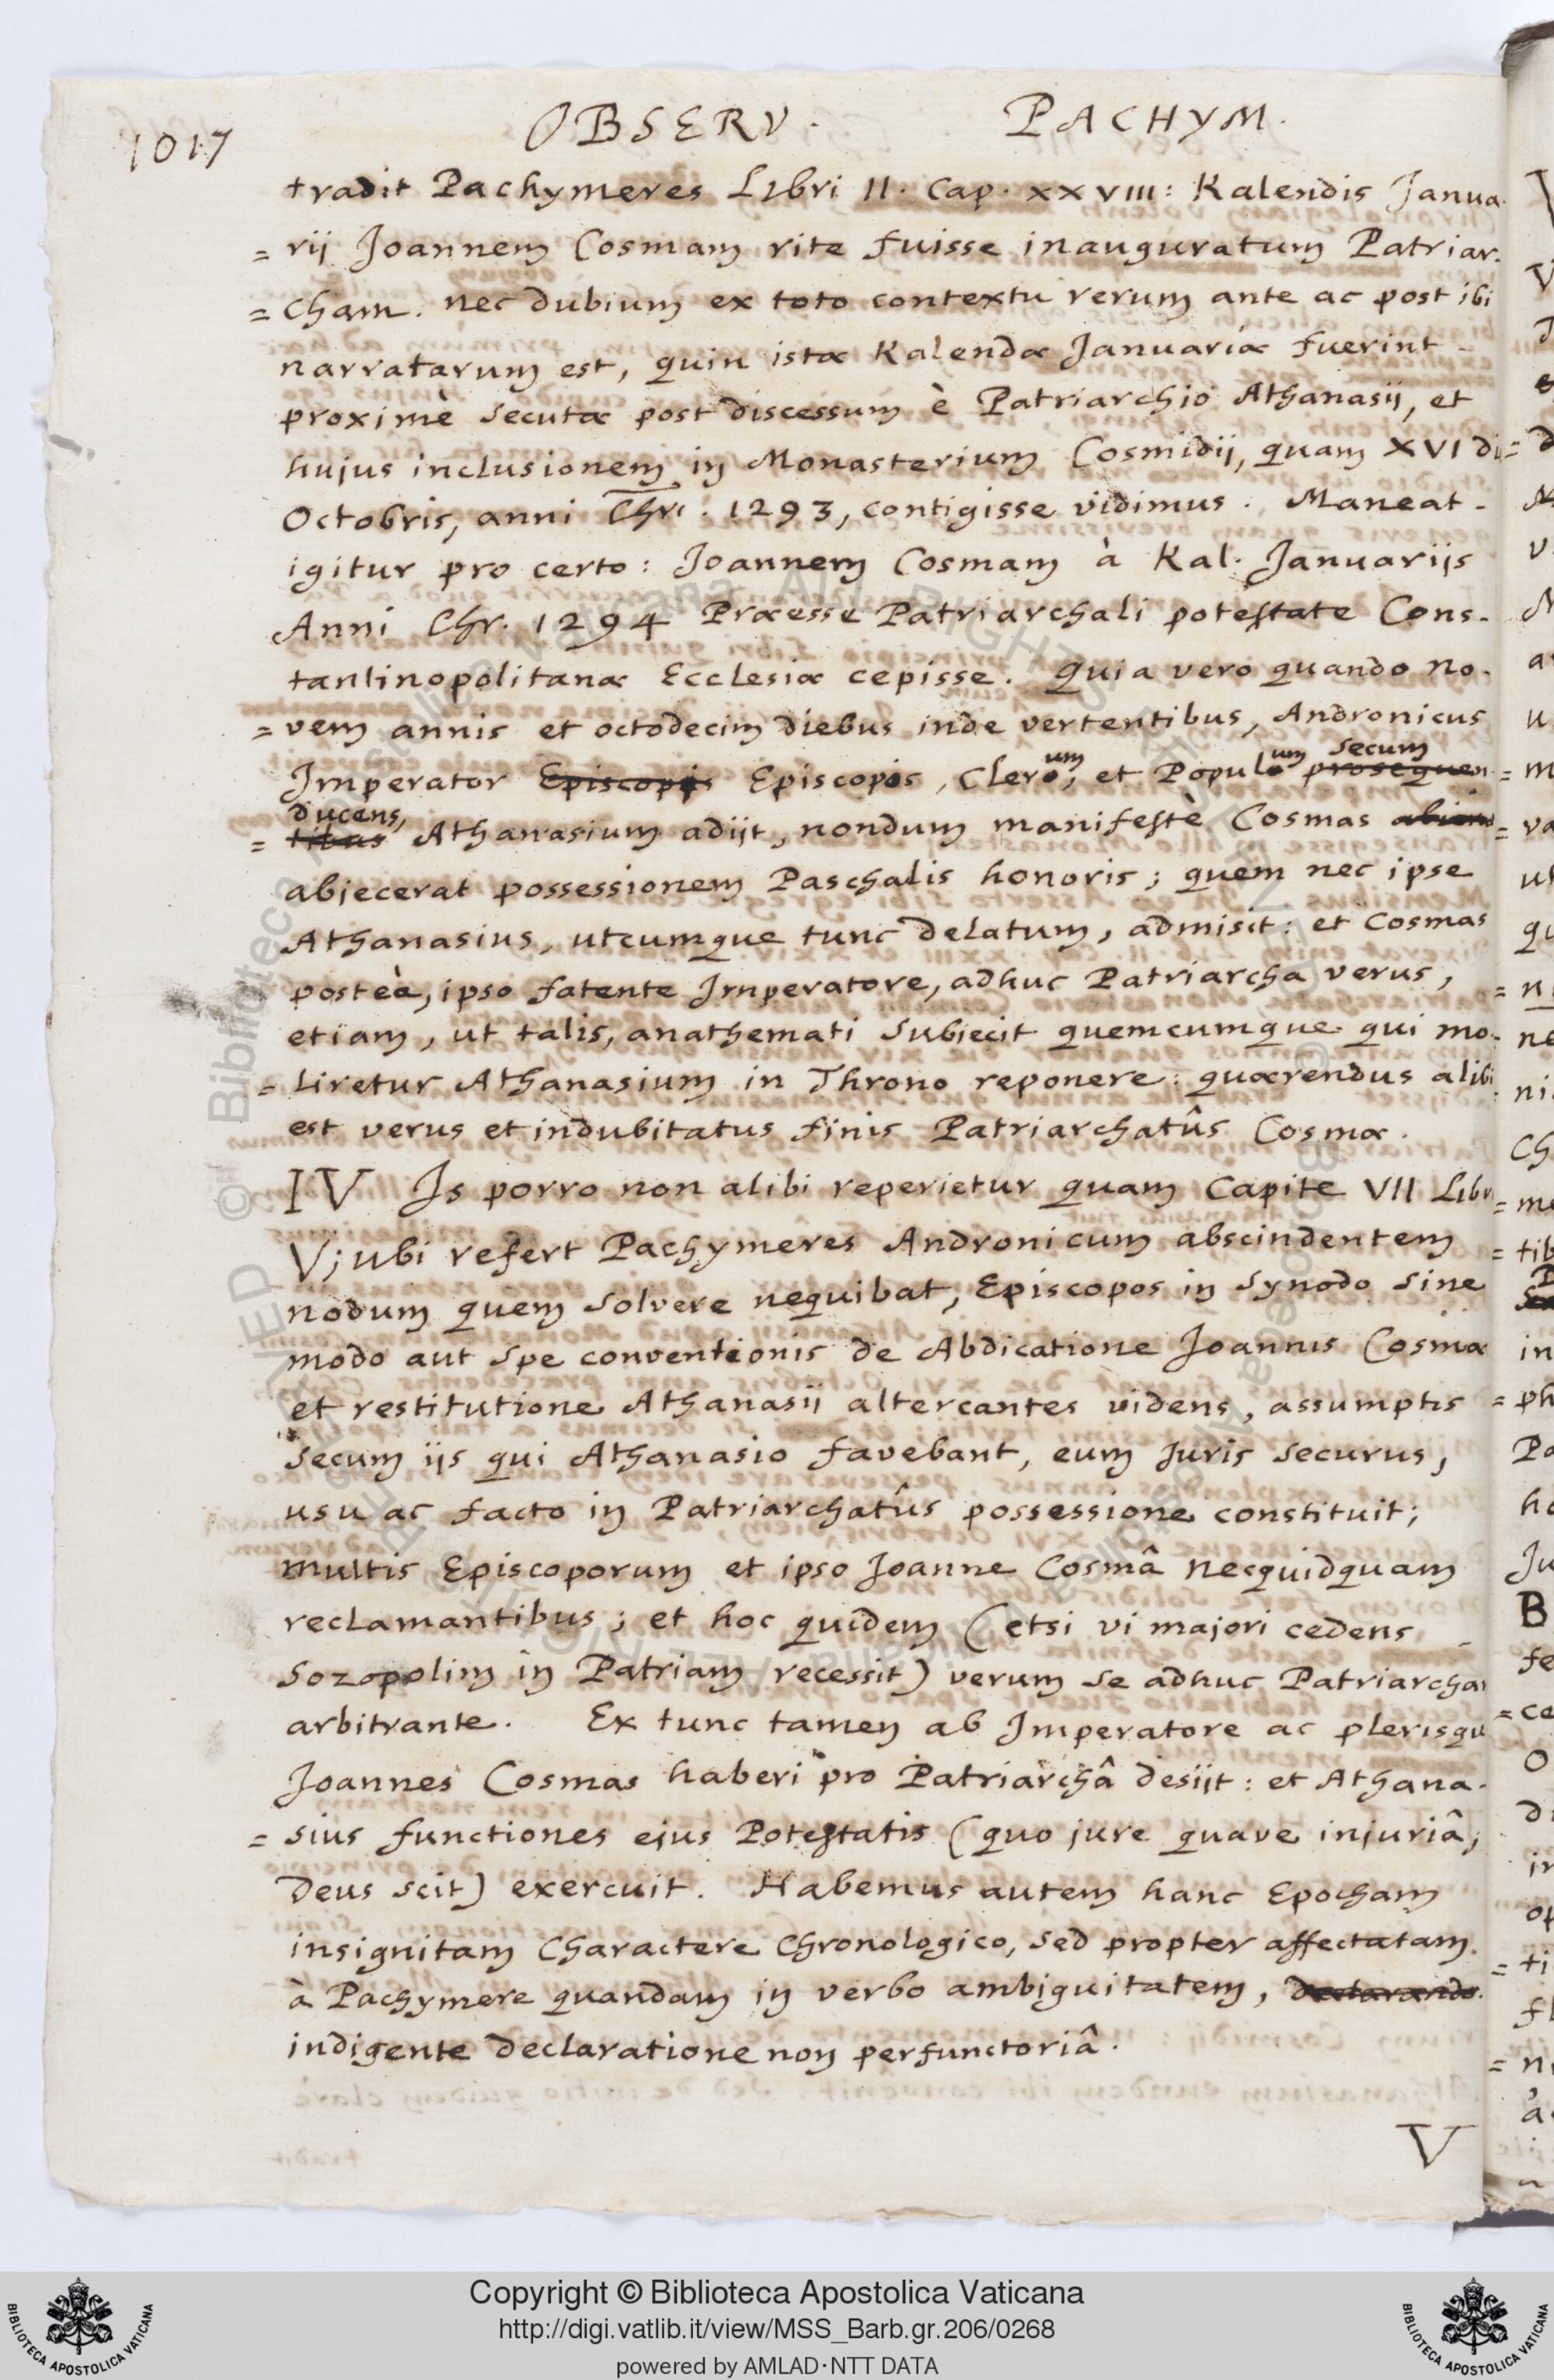 1017 OBSERV. PACHYM.
tradit Pachymeres Libri II. Cap. XXVIII: Kalendis Janua
= rij Joannem Cosmam rite fuisse inauguratum Patriar.
= cham. nec dubium ex toto contextu rerum ante ac post ibi
narratarum est, quin istæ Kalendæ Januariæ fuerint
proximè secutæ post discessum è Patriarchio Athanasij, et
hujus inclusionem in Monasterium Cosmidij, quam XVI di
Octobris, anni Chri. 1293, contigisse vidimus. Maneat
igitur pro certo: Joannem Cosmam à Kal. Januarijs
Anni Chr. 1294 Præesse Patriarchali potestate Cons-
tantinopolitanæ Ecclesiæ cepisse. Quia vero quando no-
= vem annis et octodecim diebus inde vertentibus, Andronicus
um um secum
Imperator Episcopis Episcopos, Clero, et Populo prosequen
ducens,
= tibus Athanasium adijt, nondum manifestè Cosmas
abjecerat possessionem Paschalis honoris; quem nec ipse
Athanasius, utcumque tunc delatum, admisit: et Cosmas
posteà, ipso fatente Imperatore, adhuc Patriarcha verus,
etiam, ut talis, anathemati subjecit quemcumque qui mo-
= liretur Athanasium in Throno reponere: quærendus alibi
est verus et indubitatus finis Patriarchatûs Cosmæ.
IV Is porro non alibi reperietur quam Capite VII Libr
V; ubi refert Pachymeres Andronicum abscindentem
nodum quem solvere nequibat, Episcopos in Synodo sine
modo aut spe conventionis de Abdicatione Joannis Cosmæ
et restitutione Athanasii altercantes videns, assumptis
secum ijs qui Athanasio favebant, eum juris securus,
usu ac facto in Patriarchatûs possessione constituit;
multis Episcoporum et ipso Joanne Cosmâ necquidquam
reclamantibus; et hoc quidem (etsi vi majori cedens
Sozopolim in Patriam recessit) verum se adhuc Patriarcham
arbitrante. Ex tunc tamen ab Imperatore ac plerisqu
Joannes Cosmas haberi pro Patriarchâ desijt: et Athana-
= sius functiones ejus Potestatis (quo jure quave injuriâ,
Deus scit) exercuit. Habemus autem hanc Epocham
insignitam Charactere Chronologico, sed propter affectatam
à Pachymere quandam in verbo ambiguitatem, declarando
indigente declaratione non perfunctoriâ.
V
Copyright © Biblioteca Apostolica Vaticana
http://digi.vatlib.it/view/MSS_Barb.gr.206/0268
powered by AMLAD·NTT DATA
BIBLIOTECA APOSTOLICA VATICANA
BIBLIOTECA APOSTOLICA VATICANA